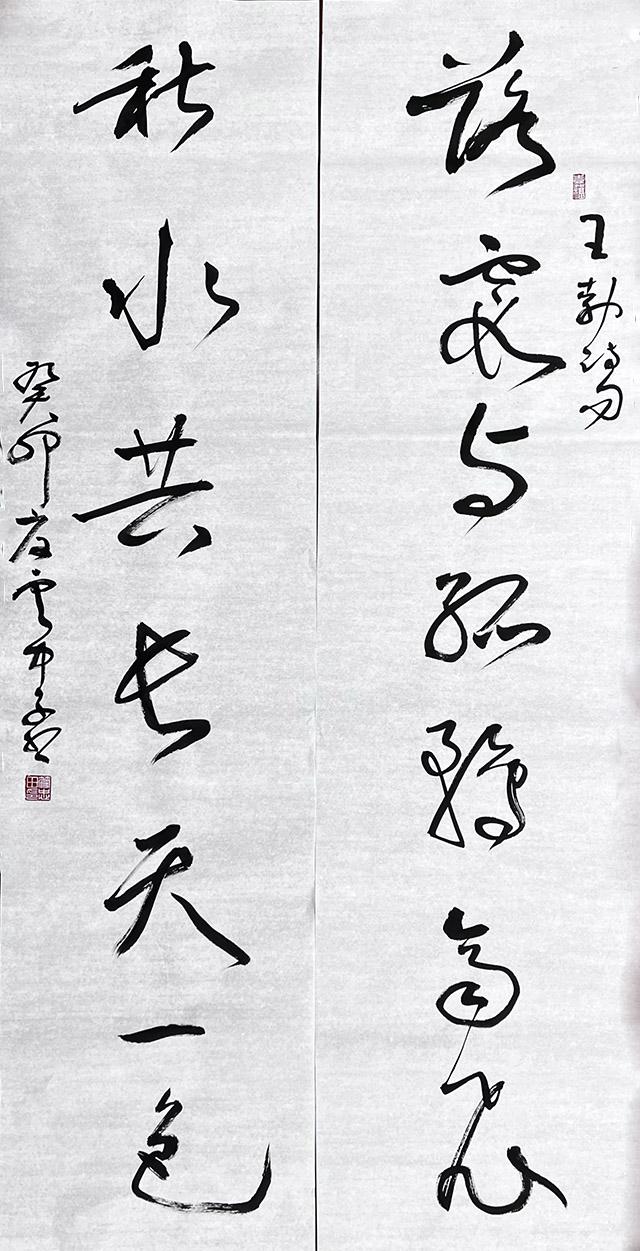 王勃诗句
落霞与孤鹜齐飞
秋水共长天一色
癸卯 云中子书